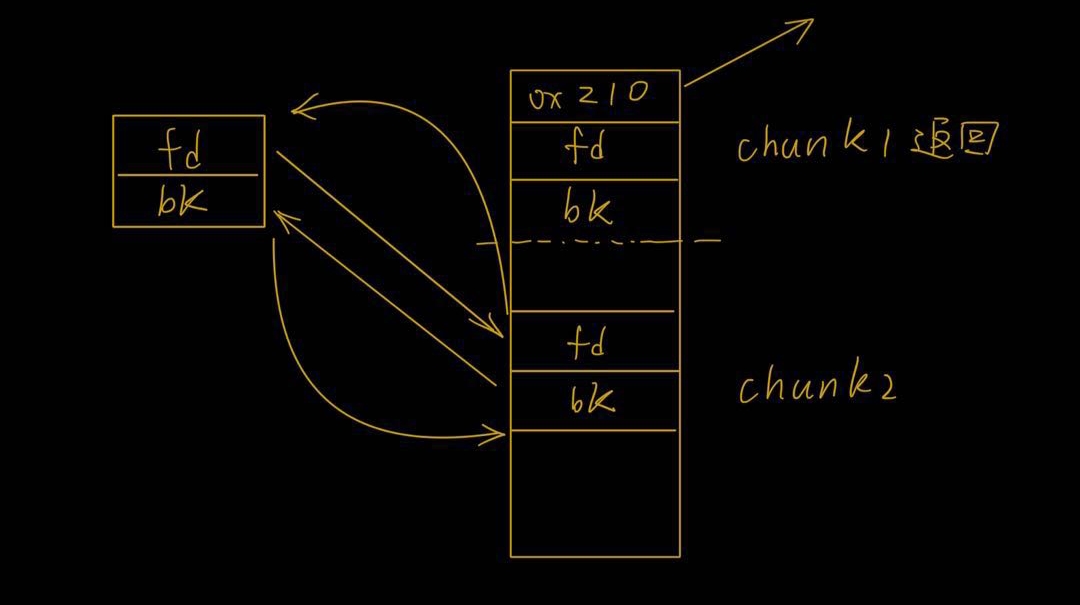 fd
bk
0x210
fd
bk
chunk1返回
fd
bk
chunk2